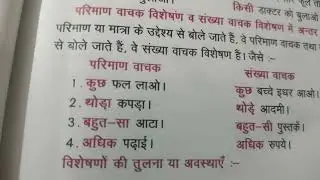 किसी डाक्टर को बुलाओ
परिमाण वाचक विशेषण व संख्या वाचक विशेषण में अन्तर
परिमाण या मात्रा के उद्देश्य से बोले जाते हैं, वे परिमाण वाचक तथा
से बोले जाते हैं, वे संख्या वाचक विशेषण हैं। जैसे :-
परिमाण वाचक संख्या वाचक
1. कुछ फल लाओ। कुछ बच्चे इधर आओ।
2. थोड़ा कपड़ा। थोड़े आदमी।
3. बहुत-सा आटा। बहुत-सी पुस्तकें।
4. अधिक पढ़ाई। अधिक रुपये।
विशेषणों की तुलना या अवस्थाएँ :-